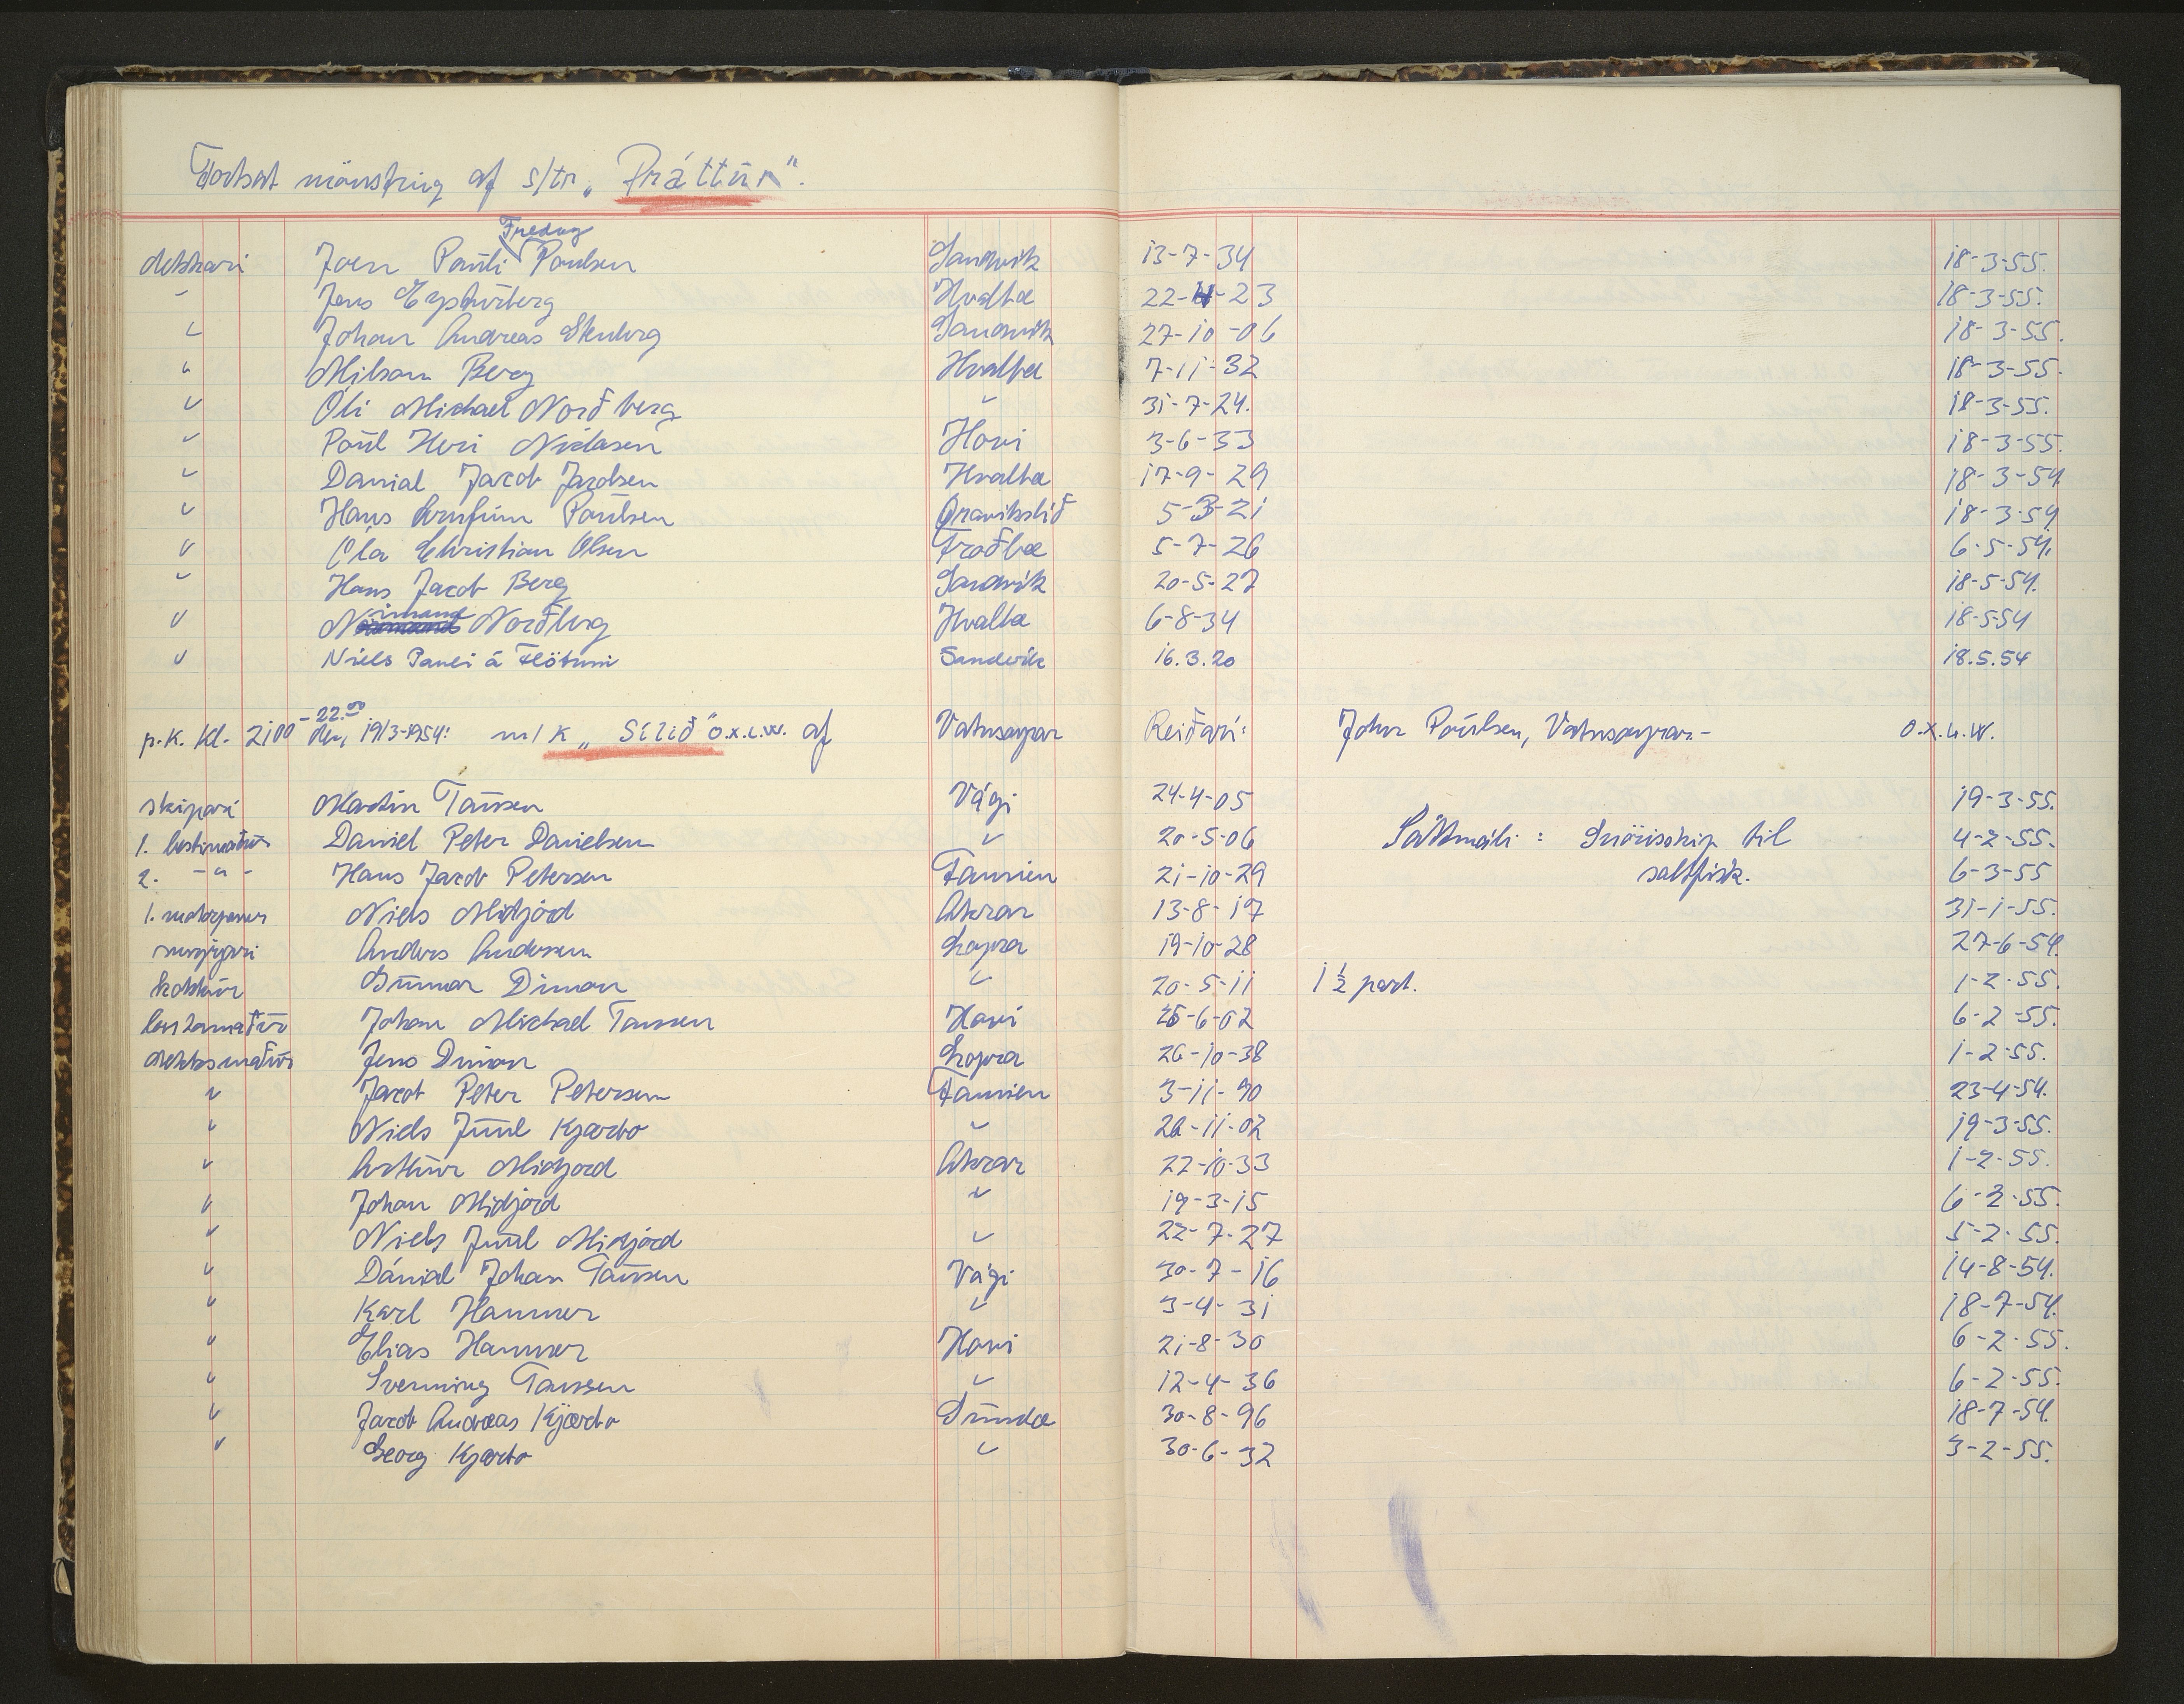 Fortsat mönstring af s/tr. „Bráttúr".
dekkari Joen Pauli Fredag Poulsen Sandvik 13-7-34 18-3-55.
" Jens Eysturberg Hvalba 22-4-23 18-3-55.
" Johan Andreas Stenberg Sandvik 27-10-06 18-3-55.
" Milson Berg Hvalba 7-11-32 18-3-55.
" Óli Michael Norðberg " 31-7-24. 18-3-55.
" Poul Heri Niclasen Hovi 3-6-33 18-3-55.
" Danial Jacob Jacobsen Hvalba 17-9-29 18-3-54.
" Hans Arnfinn Poulsen 5-3-21 18-3-54
" Óla Christian Olsen Froðba 5-7-26 6-5-54.
" Hans Jacob Berg Sandvik 20-5-27 18-5-54.
" Norðberg Hvalba 6-8-34 18-5-54
" Niels Pauli á Fløtuni Sandvik 16.3.20 18.5.54
p.k. kl. 2100 - 22.00 den, 19/3-1954: m/k „Sílið" o.x.l.w. af Vatnsoyrar Reiðari: John Poulsen, Vatnsoyrar.- O.X.L.W.
skipari Martin Tausen Vági 24-4-05 19-3-55.
1. bestimaður Daniel Peter Danielsen " 20-5-06 Sáttmáli: Snörisskip til 4-2-55.
2. -"- Hans Jacob Petersen Famien 21-10-29 saltfisk. 6-3-55
1. motorpassur Niels Midjord Akrar 13-8-17 31-1-55.
smyrjari Anders Andersen Lopra 19-10-28 27-6-54.
kokkur Gunnar Dimon " 20-5-11 1 1/2 part. 1-2-55.
Johan Michael Tausen Hovi 25-6-02 6-2-55.
dekksmaður Jens Dimon Lopra 26-10-38 1-2-55.
" Jacob Peter Petersen Famien 3-11-90 23-4-54.
" Niels Juul Kjærbo " 26-11-02 19-3-55.
" Arthur Midjord Akrar 22-10-33 1-2-55.
" Johan Midjord " 19-3-15 6-2-55.
" Niels Juul Midjord " 22-7-27 5-2-55.
" Dánial Johan Tausen Vági 30-7-16 14-8-54.
" Karl Hammer " 3-4-31 18-7-54.
" Elias Hammer Hovi 21-8-30 6-2-55.
" Svenning Tausen " 12-4-36 6-2-55.
" Jacob Andreas Kjærbo Sumba 30-8-96 18-7-54.
" Georg Kjærbo " 30-6-32 3-2-55.